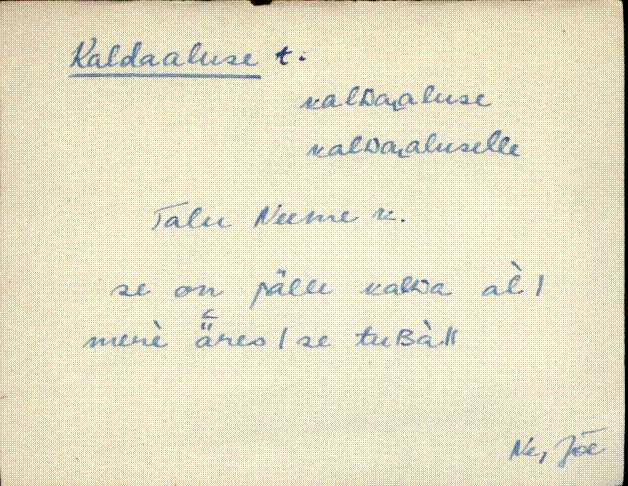 Kaldaaluse t.
kalDa͔aluse
kalDa͔aluselle
Talu Neeme k.
se on jälle kalDa al̀ |
merè äres | se tuBàk
Ne, Jõe